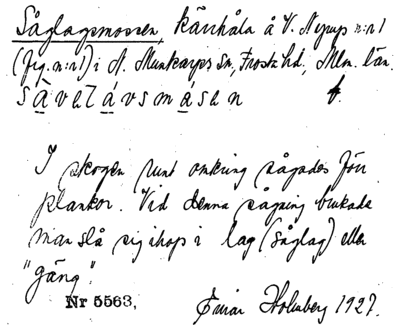 Såglagsmossen, kärrhåla å V. Nyrup n:r 1
(fig. n:r 1) i N. Munkarps Sn, Frosta hd, Mlm. län.
sàvelávsmåsen f.
I skogen runt omkring sågades förr
plankor. Vid denna sågning brukade
man slå sig ihop i lag (såglag) eller
"gäng".
Nr 5563, Einar Holmberg 1927.